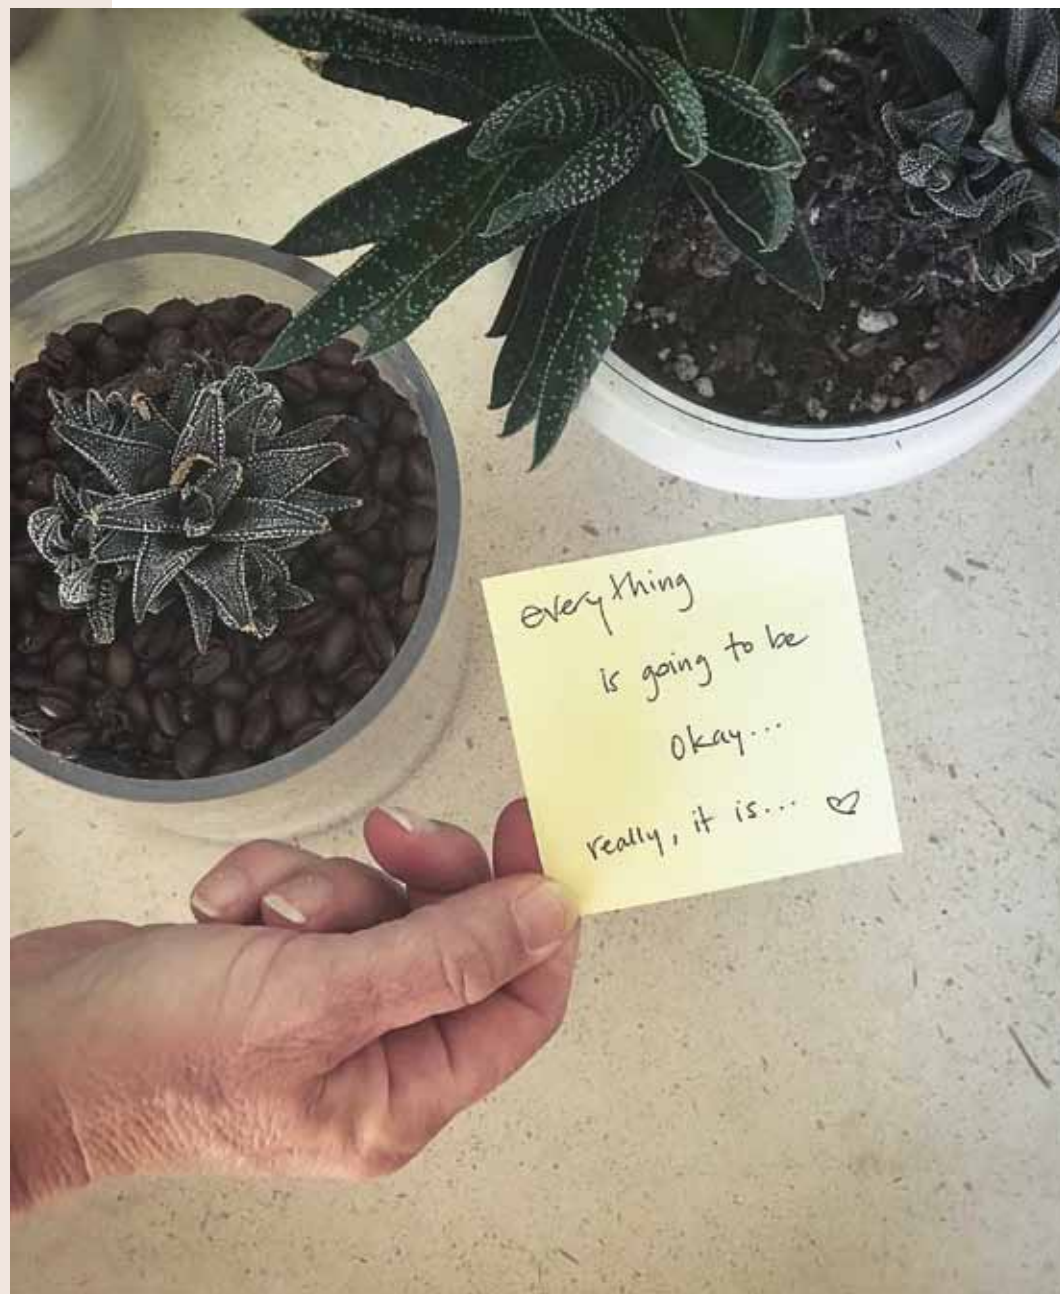 everything
is going to be
okay...
really, it is... ♡